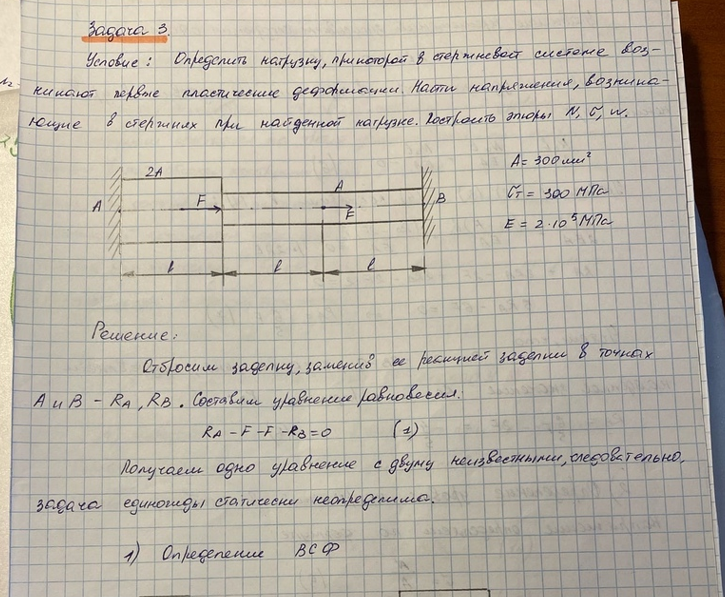 Задача 3.
Условие: Определить нагрузку, при которой в стержневой системе воз-
никают первые пластические деформации. Найти напряжения, возника-
ющие в стержнях при найденной нагрузке. Построить эпюры N, σ, w.
2A
A
F
A
F
B
l
l
l
A = 300 мм²
σт = 300 МПа
E = 2·10⁵ МПа
Решение:
Отбросим заделку, заменив ее реакцией заделки в точках
A и B – RA, RB. Составим уравнение равновесия.
RA – F – F – RB = 0 (1)
Получаем одно уравнение с двумя неизвестными, следовательно,
задача единожды статически неопределима.
1) Определение ВСФ